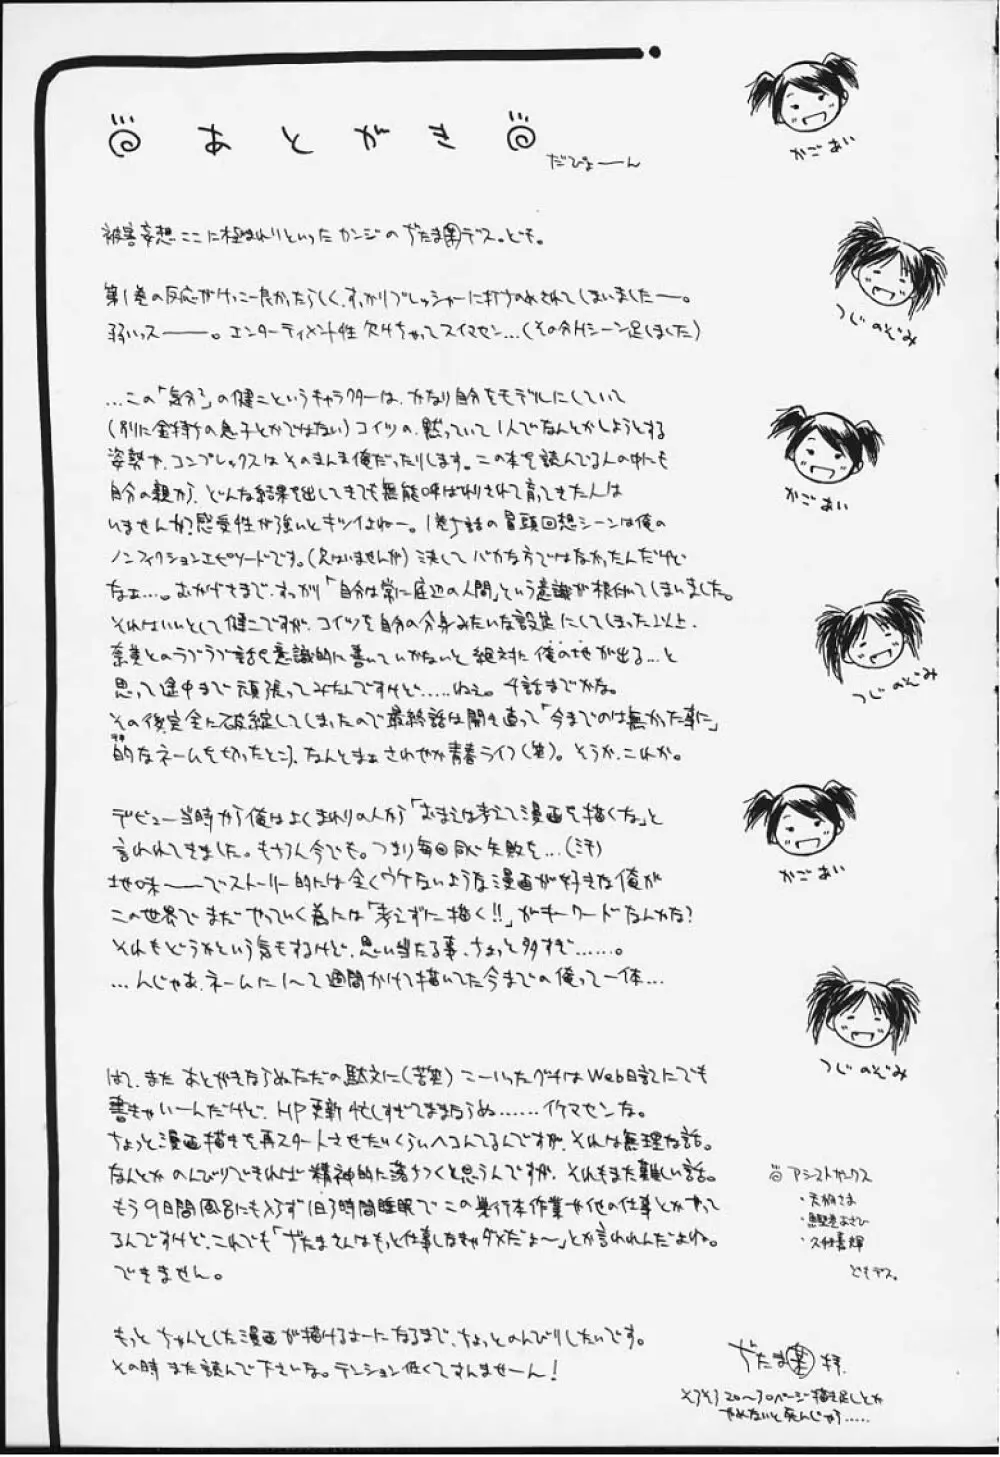 あとがき
だぴょーん
被害妄想ここに極まれりといったカンジのぢたま㊚デス。ども。
第1巻の反応がけっこー良かったらしく、すっかりプレッシャーに打ちのめされてしまいましたー。
弱いっスー。エンターティメント性欠けちゃってスイマセン…(その分Hシーン足しました)
…この「気分ろ」の健二というキャラクターは、かなり自分をモデルにしていて
(別に金持ちの息子とかではない)コイツの、黙っていて1人でなんとかしようとする
姿勢や、コンプレックスはそのまんま俺だったりします。この本を読んでる人の中にも
自分の親から、どんな結果を出してきても無能呼ばわりされて育ってきた人は
いませんか?感受性が強いとキツイよねー。1巻5話の冒頭回想シーンは俺の
ノンフィクションエピソードです。(兄はいませんが)決してバカな方ではなかったんだけど
なぁ…。おかげさまで、すっかり「自分は常に底辺の人間」という意識が根付いてしまいました。
それはいいとして健二ですが、コイツを自分の分身みたいな設定にしてしまった以上、
奈美とのラブラブ話を意識的に書いていかないと絶対に俺の地が出る…と
思って途中まで頑張ってみたんですけど……ねぇ。4話までかな。
その後完全に破綻してしまったので最終話は開き直って「今までのは無かった事に」
的なネームを切ったところ、なんとまぁさわやか青春ライフ(笑)。そうか、これか。
デビュー当時から俺はよくまわりの人から「おまえは考えて漫画を描くな」と
言われてきました。もちろん今でも。つまり毎回同じ失敗を…(汗)
地味ーでストーリー的には全くウケないような漫画が好きな俺が
この世界でまだやっていく為には「考えずに描く!!」がキーワードなんかな?
それもどうかという気もするけど、思い当たる事、ちょっと多すぎ……。
…んじゃあ、ネームに1〜2週間かけて描いてた今までの俺って一体…
はて、また あとがきならぬただの駄文に(苦笑)こーいったグチはWeb日記にでも
書きゃいーんだけど、HP更新忙しすぎてままならぬ……イケマセンな。
ちょっと漫画描きを再スタートさせたいくらいヘコんでるんですが、それは無理な話。
なんとかのんびりできれば精神的に落ちつくと思うんですが、それもまた難しい話。
もう9日間風呂にも入らず1日3時間睡眠でこの単行本作業や他の仕事とかやって
るんですけど、これでも「ぢたまさんはもっと仕事しなきゃダメだよ〜」とか言われんだよね。
できません。
もっとちゃんとした漫画が描けるよーになるまで、ちょっとのんびりしたいです。
その時また読んで下さいな。テンション低くてすんませーん!
かごあい
つじのぞみ
かごあい
つじのぞみ
かごあい
つじのぞみ
アシストサンクス
・久住喜輝
ども デス。
ぢたま 拝.
そろそろ20〜30ページ描き足しとか
やめないと死んじゃう……